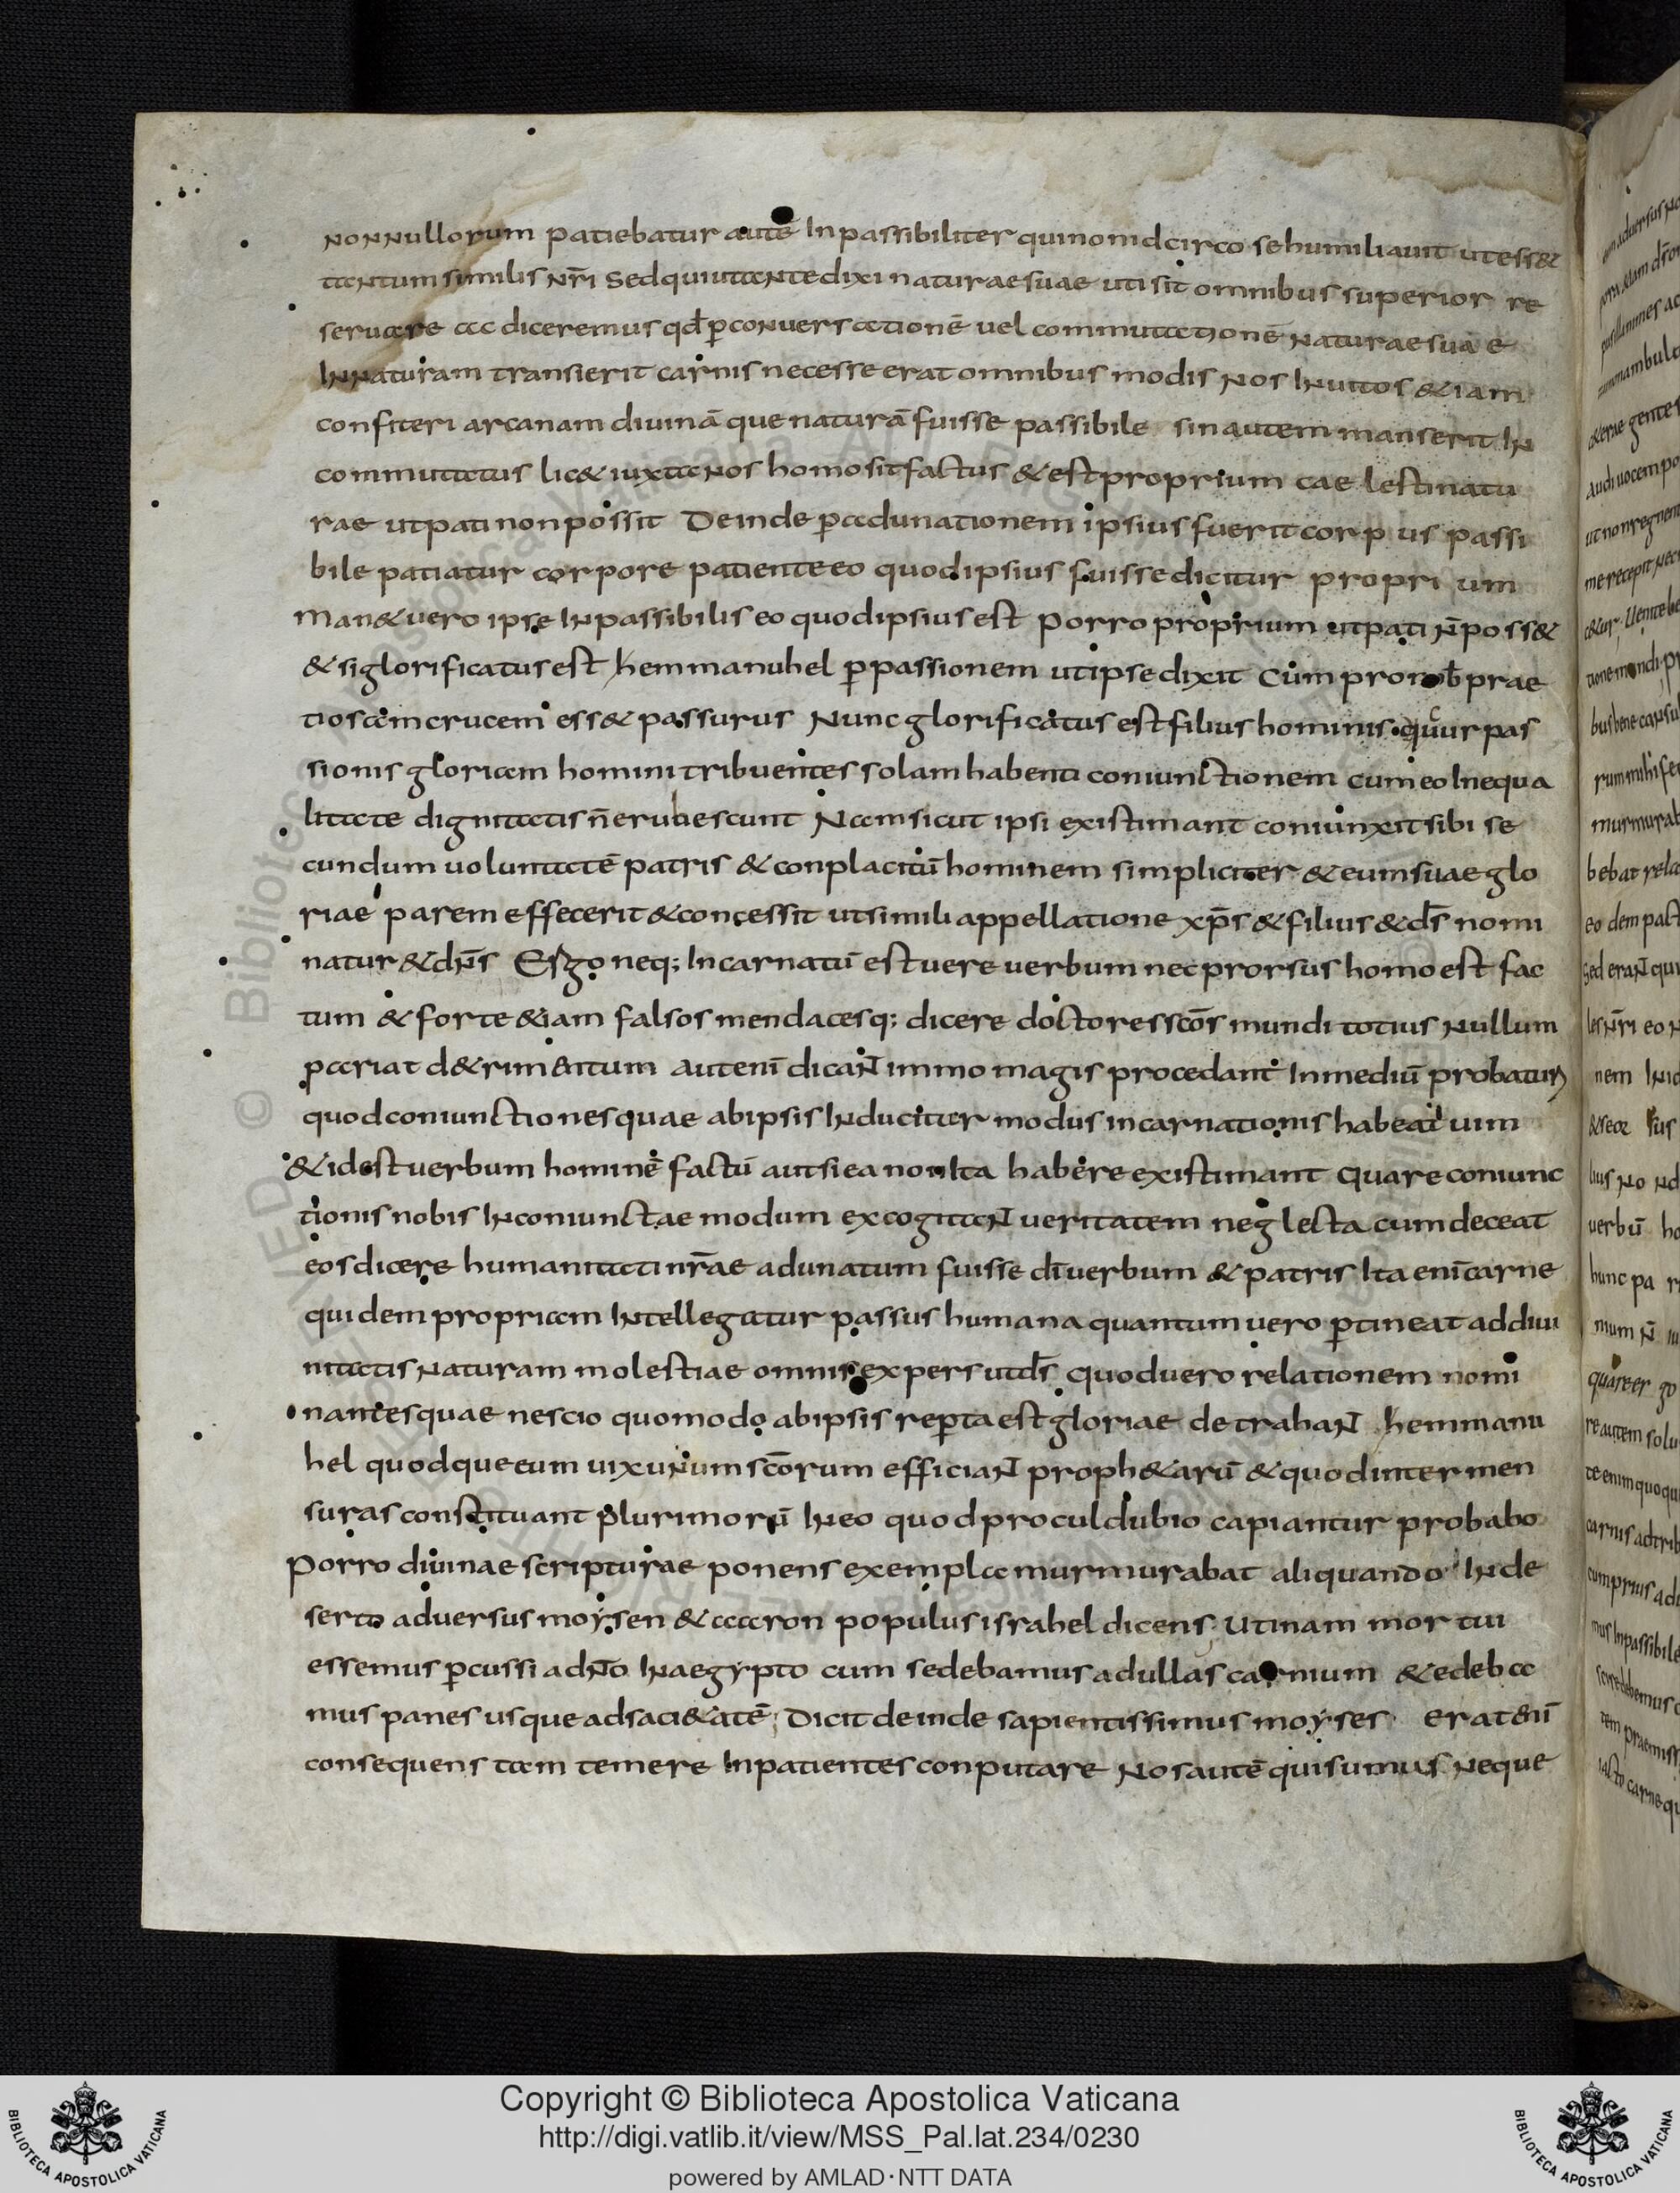 nonnullorum patiebatur autē Inpassibiliter quinonidcirco sehumiliauit utess&
tantum similis nr̄i sed quiutante dixi naturae suae uti sit omnibus superior re
seruare ac diceremus qd̄ ꝑconuersationē uel commutationē naturae suae
Innaturam transierit carnis necesse erat omnibus modis nos Inuitos &iam
confiteri arcanam diuinā que naturā fuisse passibile sin autem manserit In
commutatus lic& iuxta nos homo sit factus & est proprium caelestinatu
rae utpati non possit Deinde ꝑadunationem ipsius fuerit corpus passi
bile patiatur corpore patiente eo quod ipsius fuisse dicitur proprium
man& uero ipse Inpassibilis eo quod ipsius est porro proprium utpati n̄ poss&
& si glorificatus est hemmanuhel ꝑpassionem ut ipse dixit Cum pronob̄ prae
tiosam crucem ess& passurus Nunc glorificatus est filius hominis quur pas
sionis gloriam homini tribuentes solam habenti coniunctionem cum eo Inequa
litate dignitatis n̄ erubescunt Nam sicut ipsi existimant coniunxit sibi se
cundum uoluntatē patris & conplacitū hominem simpliciter & eum suae glo
riae parem effecerit & concessit ut simili appellatione xp̄s & filius & ds̄ nomi
natur & dn̄s Ergo neq; Incarnatū est uere uerbum nec prorsus homo est fac
tum & forte &iam falsos mendacesq; dicere doctores scōs mundi totius nullum
pariat d&rimentum aut enī dicant immo magis procedant Inmediū probatur
quod coniunctiones quae ab ipsis Inducitur modus incarnationis habeat uim
& id est uerbum hominē factū aut si ea non Ita habere existimant Quare coniunc
tionis nobis Inconiunctae modum excogitant ueritatem neglecta cum deceat
eos dicere humanitati nr̄ae adunatum fuisse dī uerbum & patris Ita enī carne
quidem propriam Intellegatur passus humana quantum uero ꝑtineat ad diui
nitatis naturam molestiae omnis expers ut ds̄ quod uero relationem nomi
nantes quae nescio quomodo ab ipsis reꝑta est gloriae detrahant hemmanu
hel quodque eum uix unum scōrum efficiant proph&arū & quod inter men
suras constituant plurimorū In eo quod procul dubio capiantur probabo
Porro diuinae scripturae ponens exempla murmurabat aliquando In de
serto aduersus moysen & aaron populus israhel dicens utinam mortui
essemus ꝑcussi a dn̄o In aegypto cum sedebamus ad ullas carnium & edeba
mus panes usque ad saci&atē; Dicit deinde sapientissimus moyses erat enī
consequens tam temere Inpatientes conputare Nos autē qui sumus Neque
Copyright © Biblioteca Apostolica Vaticana
http://digi.vatlib.it/view/MSS_Pal.lat.234/0230
powered by AMLAD·NTT DATA
BIBLIOTECA APOSTOLICA VATICANA
BIBLIOTECA APOSTOLICA VATICANA